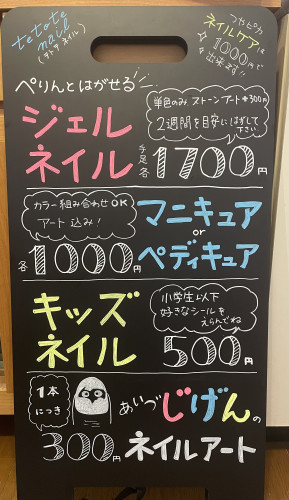 tetote
nail
(テトテ ネイル)
つやピカ
ネイルケアも
1000円で
出来ます!!
ぺりんとはがせる
ジェル
ネイル
単色のみ ストーンアート+300円
2週間を目安にはずして
下さい
手足各
1700円
カラー組み合わせOK
アート込み!
各1000円
マニキュア
or
ペディキュア
キッズ
ネイル
小学生以下
好きなシールを
えらんでね
500円
1本
につき
300円
あいづじげんの
ネイルアート